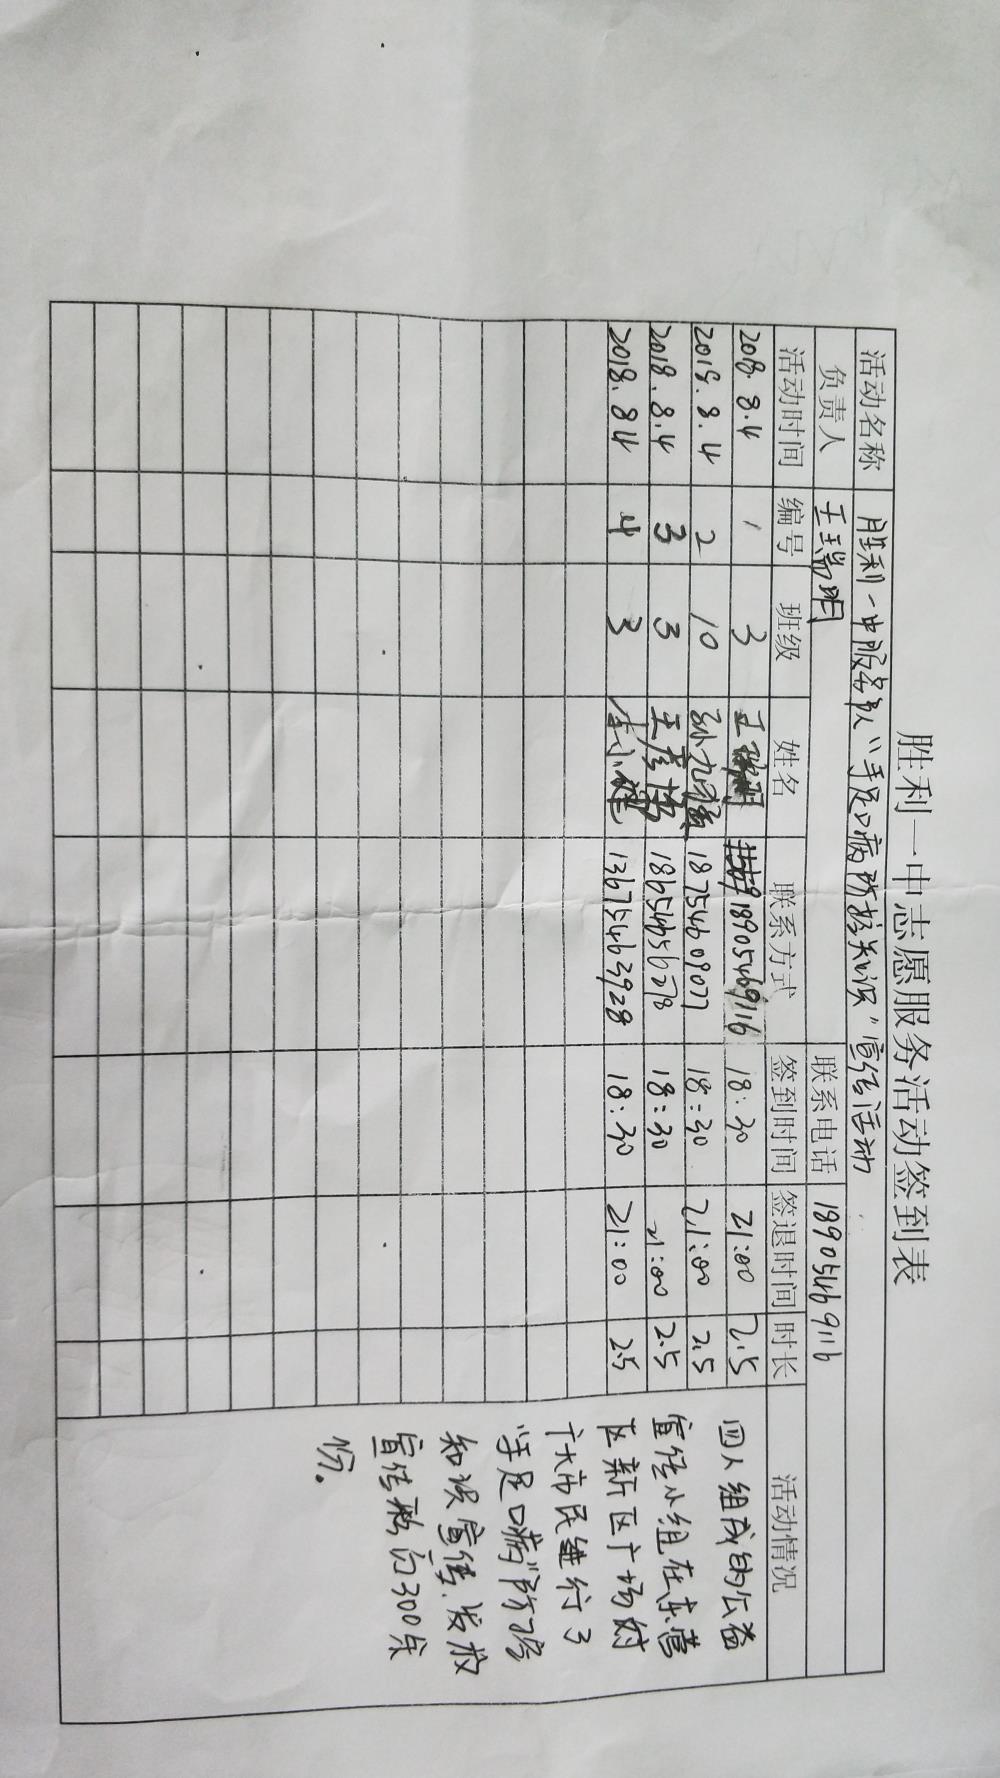 胜利一中志愿服务活动签到表
活动名称 胜利一中服务队"手足口病防控知识"宣传活动
负责人 王瑞明 联系电话 18905469116
活动时间 编号 班级 姓名 联系方式 签到时间 签退时间 时长 活动情况
2018.8.4 1 3 王瑞明 18905469116 18:30 21:00 2.5
2018.8.4 2 10 孙 18754609077 18:30 21:00 2.5
2018.8.4 3 3 王彦博 18654656278 18:30 21:00 2.5
2018.8.4 4 3 李小 13675463928 18:30 21:00 2.5
四人组成的公益
宣传小组在东营
区新区广场对
广大市民进行了
"手足口病"防治
知识宣传,发放
宣传彩页300余
份。